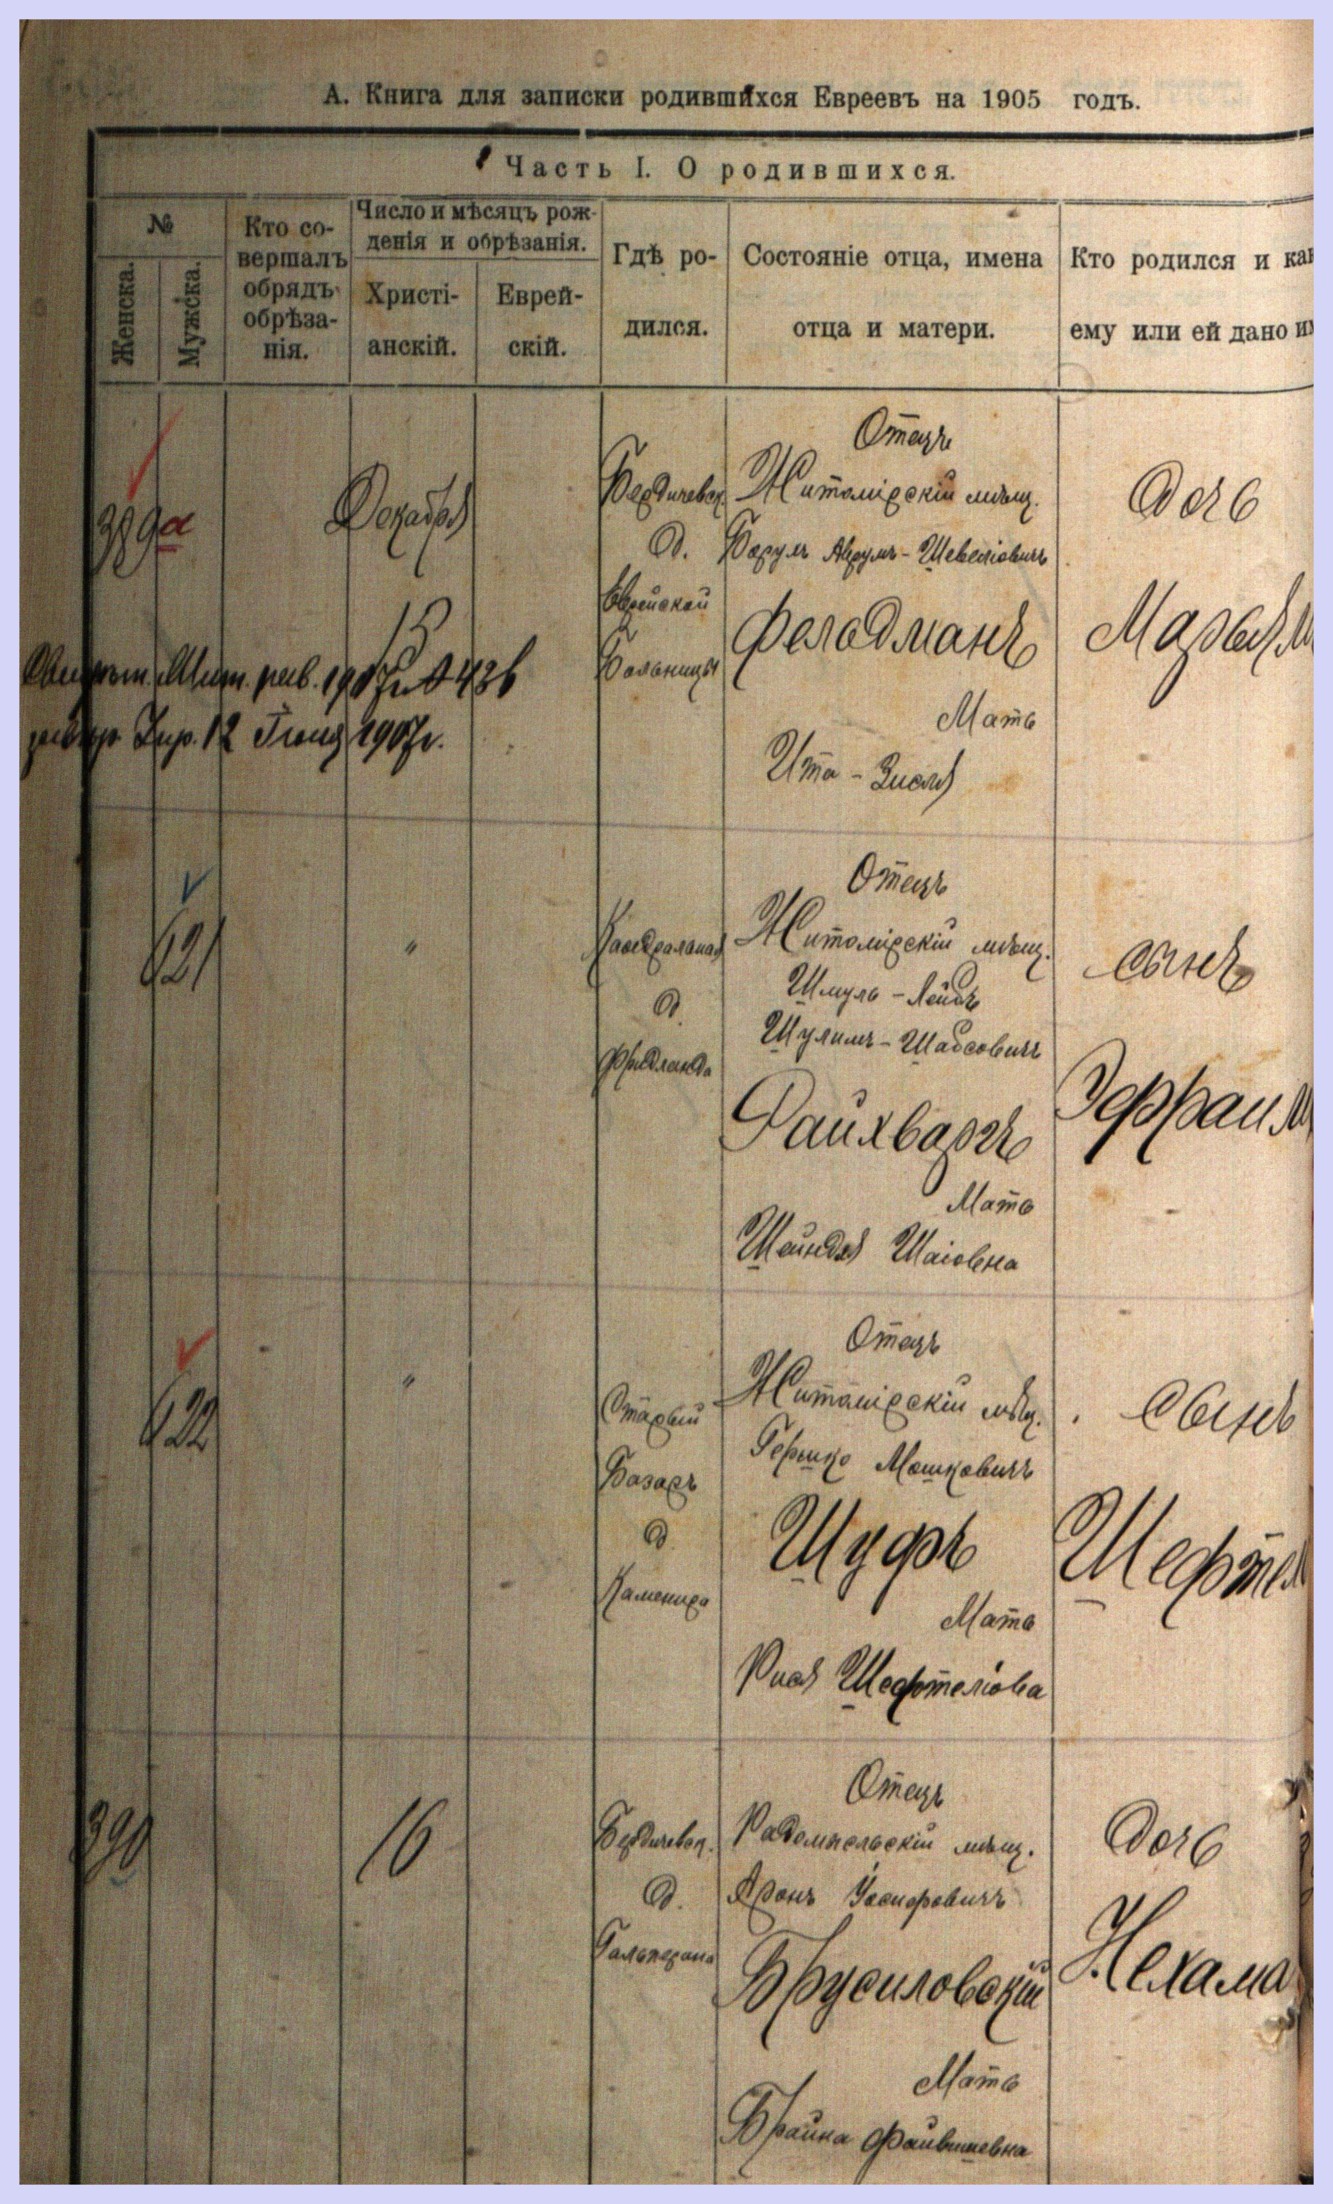 А. Книга для записки родившихся Евреевъ на 1905 годъ.
Часть I. О родившихся.
№
Женска.
Мужска.
Кто со-
вершалъ
обрядъ
обрѣза-
нія.
Число и мѣсяцъ рож-
денія и обрѣзанія.
Христі-
анскій.
Еврей-
скій.
Гдѣ ро-
дился.
Состояніе отца, имена
отца и матери.
Кто родился и как
ему или ей дано им
389а
Декабря
15
1907 г. № 436
12 Іюня 1907 г.
Бердичевск.
д.
Еврейской
Больницы
Отецъ
Житомірскій мѣщ.
Борухъ Аврумъ-Шевеліовичъ
Фельдманъ
Мать
Ита-Зисля
Дочь
Марьям
621
"
Каѳедральная
д.
Фридланда
Отецъ
Житомірскій мѣщ.
Шмуль-Лейбъ
Шулимъ-Шабсовичъ
Райхваргъ
Мать
Шейндля Шаіовна
сынъ
Эфраим
622
"
Старый
Базаръ
д.
Каменира
Отецъ
Житомірскій мѣщ.
Гершко Мошковичъ
Шуфъ
Мать
Рися Шефтеліова
сынъ
Шефтел
390
16
Бердичевск.
д.
Гальперина
Отецъ
Радомысльскій мѣщ.
Аронъ Іосифовичъ
Брусиловскій
Мать
Брайна Файвишевна
Дочь
Нехама